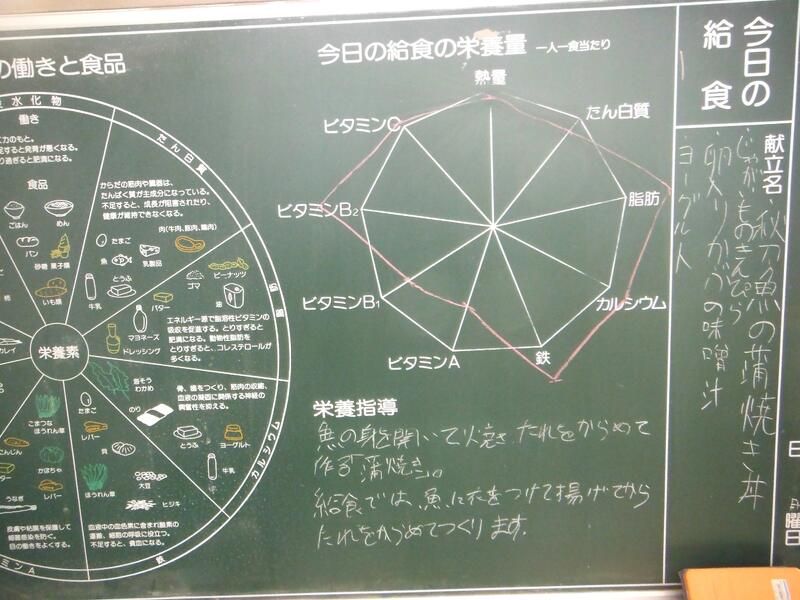 の働きと食品
水化物
働き
力のもと。
足すると発育が悪くなる。
り過ぎると肥満になる。
食品
ごはん
めん
パン
砂糖 菓子類
いも類
たん白質
からだの筋肉や臓器は、
たんぱく質が主成分になっている。
不足すると、成長が阻害されたり、
健康が維持できなくなる。
肉(牛肉、豚肉、鶏肉)
たまご
魚
乳製品
とうふ
牛乳
脂肪
ピーナッツ
ゴマ
油
バター
マヨネーズ
ドレッシング
エネルギー源で脂溶性ビタミンの
吸収を促進する。とりすぎると
肥満になる。動物性脂肪を
とりすぎると、コレステロールが
多くなる。
栄養素
カルシウム
骨、歯をつくり、筋肉の収縮、
血液の凝固に関係する神経の
興奮性を抑える。
海そう
わかめ
のり
とうふ
ヨーグルト
牛乳
鉄
たまご
レバー
貝
大豆
ほうれん草
ヒジキ
血液中の血色素に含まれ酸素の
運搬、細胞の呼吸に役立つ。
不足すると、貧血になる。
こまつな
ほうれん草
にんじん
かぼちゃ
レバー
うなぎ
皮膚や粘膜を保護して
細菌感染を防ぐ。
目の働きをよくする。
ンA
カレイ
今日の給食の栄養量 一人一食当たり
熱量
たん白質
脂肪
カルシウム
鉄
ビタミンA
ビタミンB₁
ビタミンB₂
ビタミンC
栄養指導
魚の身を開いて焼き、たれをからめて
作る「蒲焼き」。
給食では、魚に衣をつけて揚げてから
たれをからめてつくります。
今日の
給食
献立名
秋刀魚の蒲焼き丼
じゃがいものきんぴら
卵入りかぶの味噌汁
ヨーグルト
日
曜日